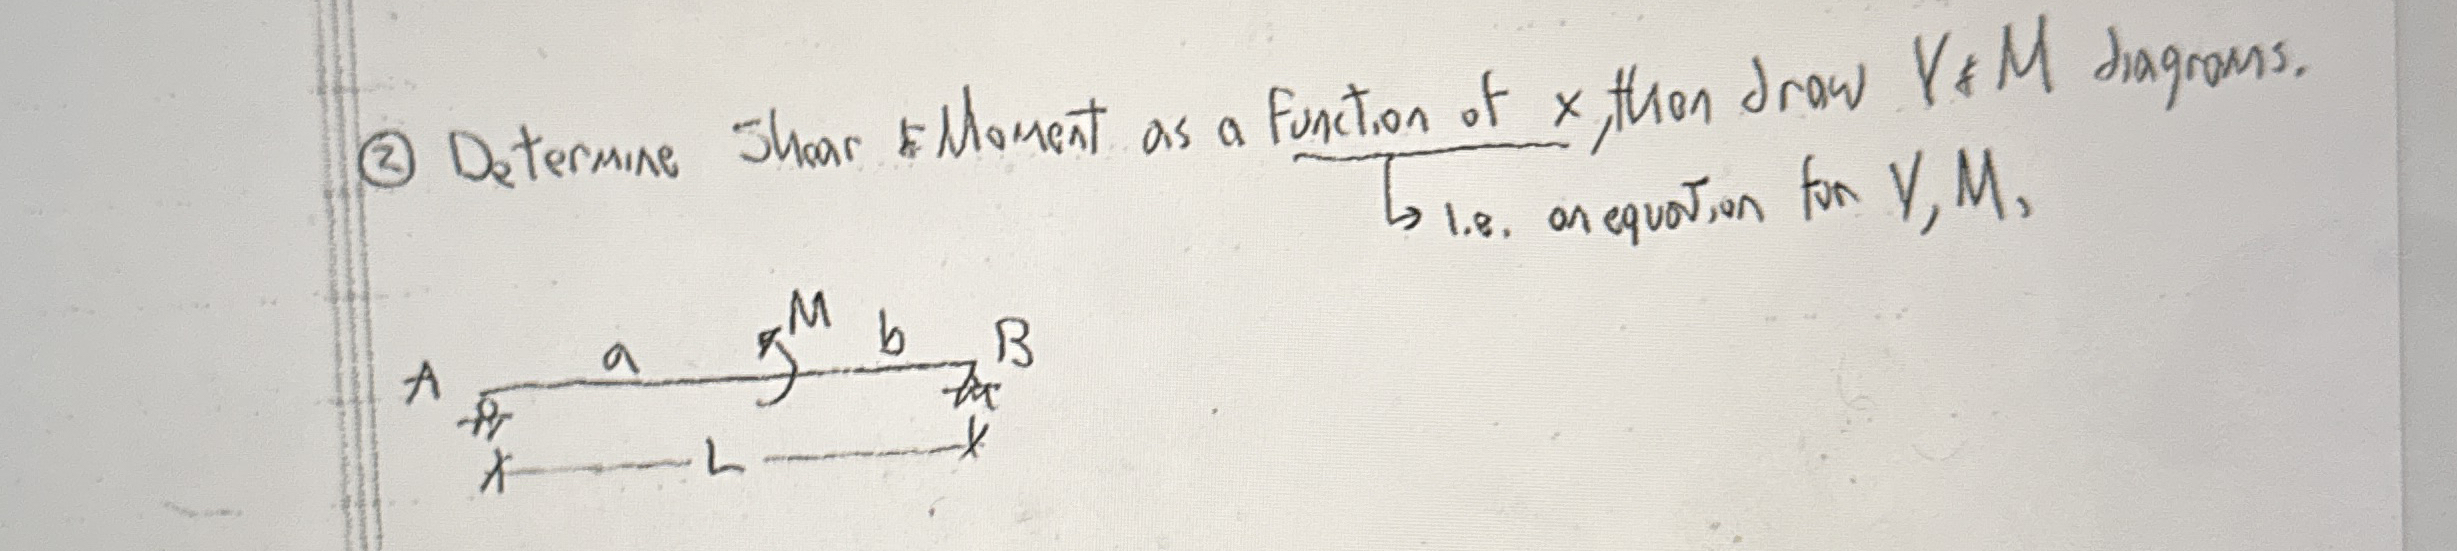 ② Determine Shear & Moment as a function of x, then draw V & M diagrams.
↳ i.e. an equation for V, M.
M
a b B
A
L